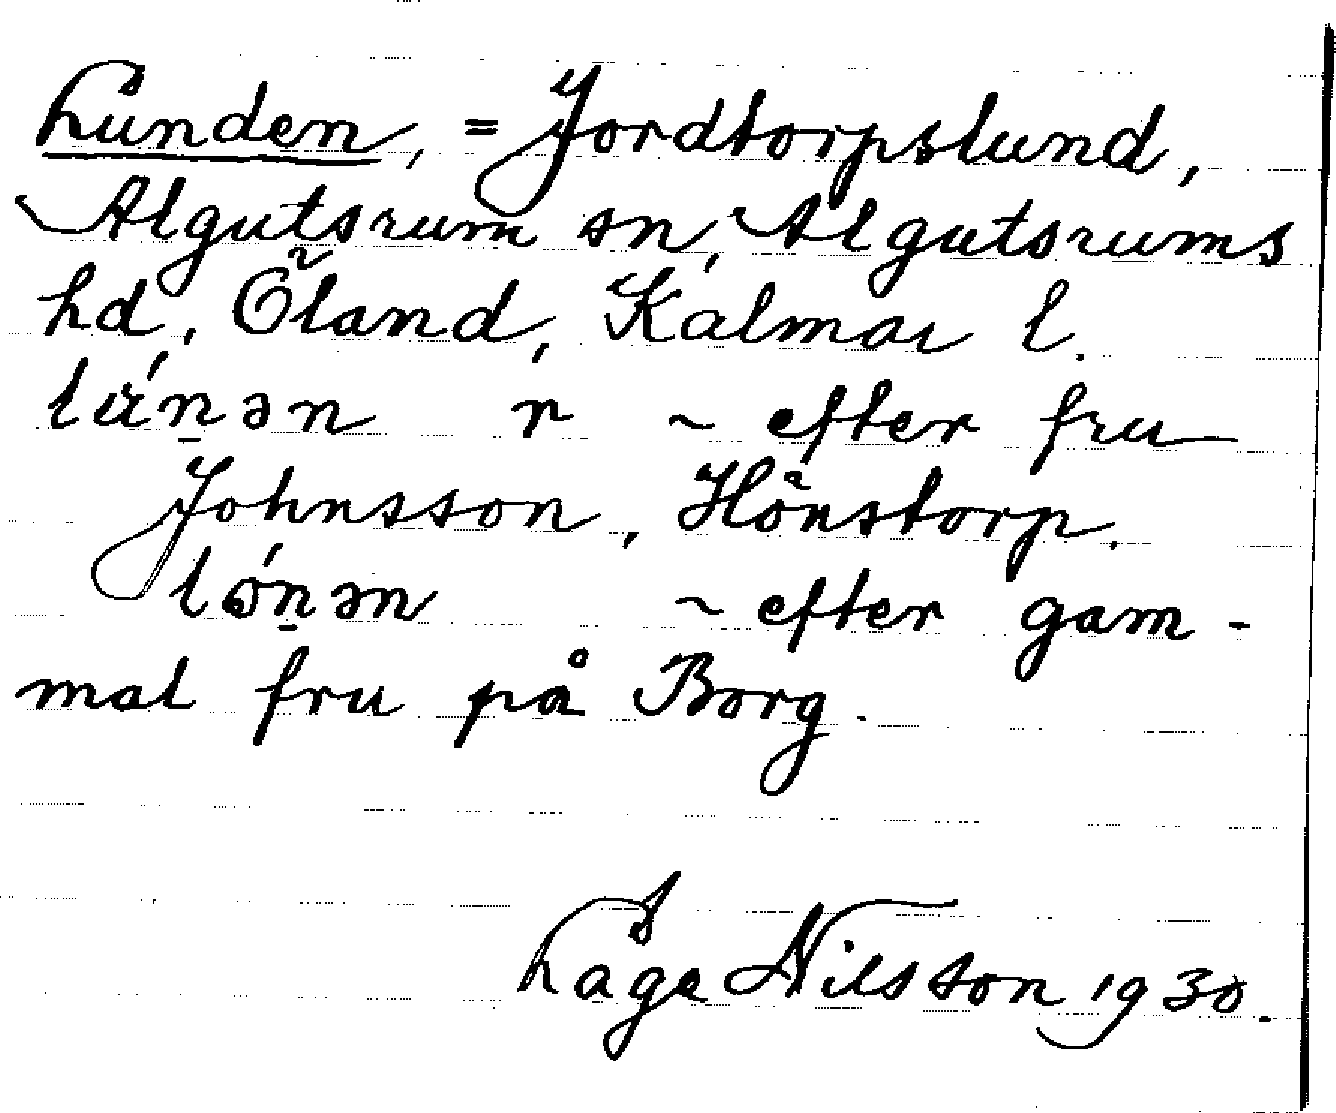 Lunden, = Jordtorpslund,
Algutsrum sn, Algutsrums
hd, Öland, Kalmar l.
lúṉən r ~ efter fru
Johnsson, Hönstorp.
lóṉən ~ efter gam-
mal fru på Borg.
Låge Nilsson 1930.